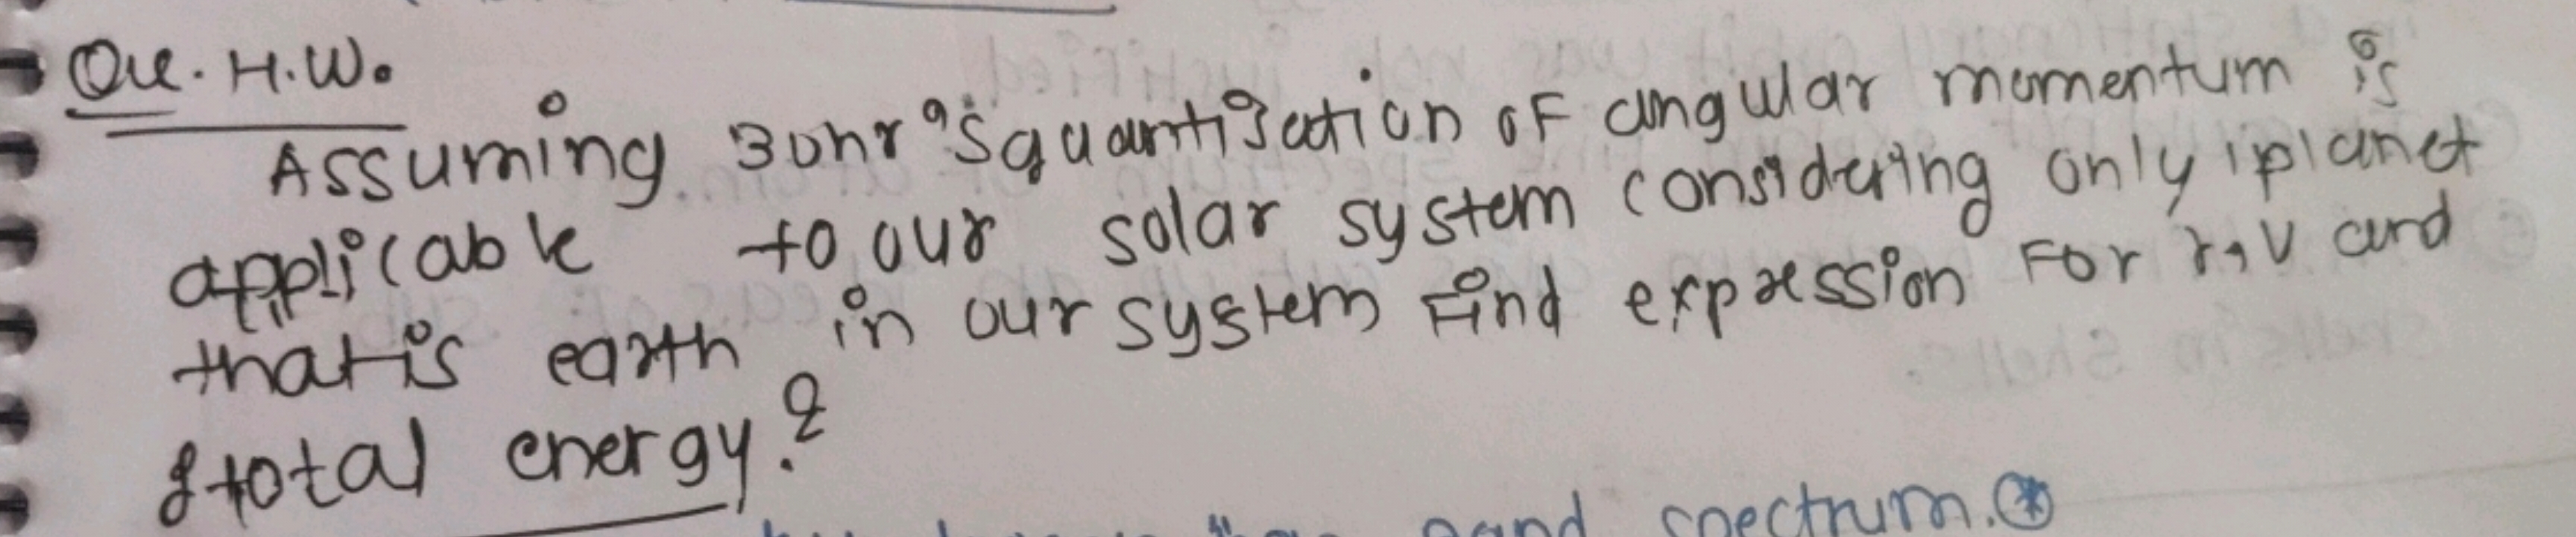 Que. H.W.
Assuming Bohr's quantisation of angular momentum is
applicable to our solar system considering only 1 planet
that is earth in our system Find expression For r, v and
total energy.?
spectrum.